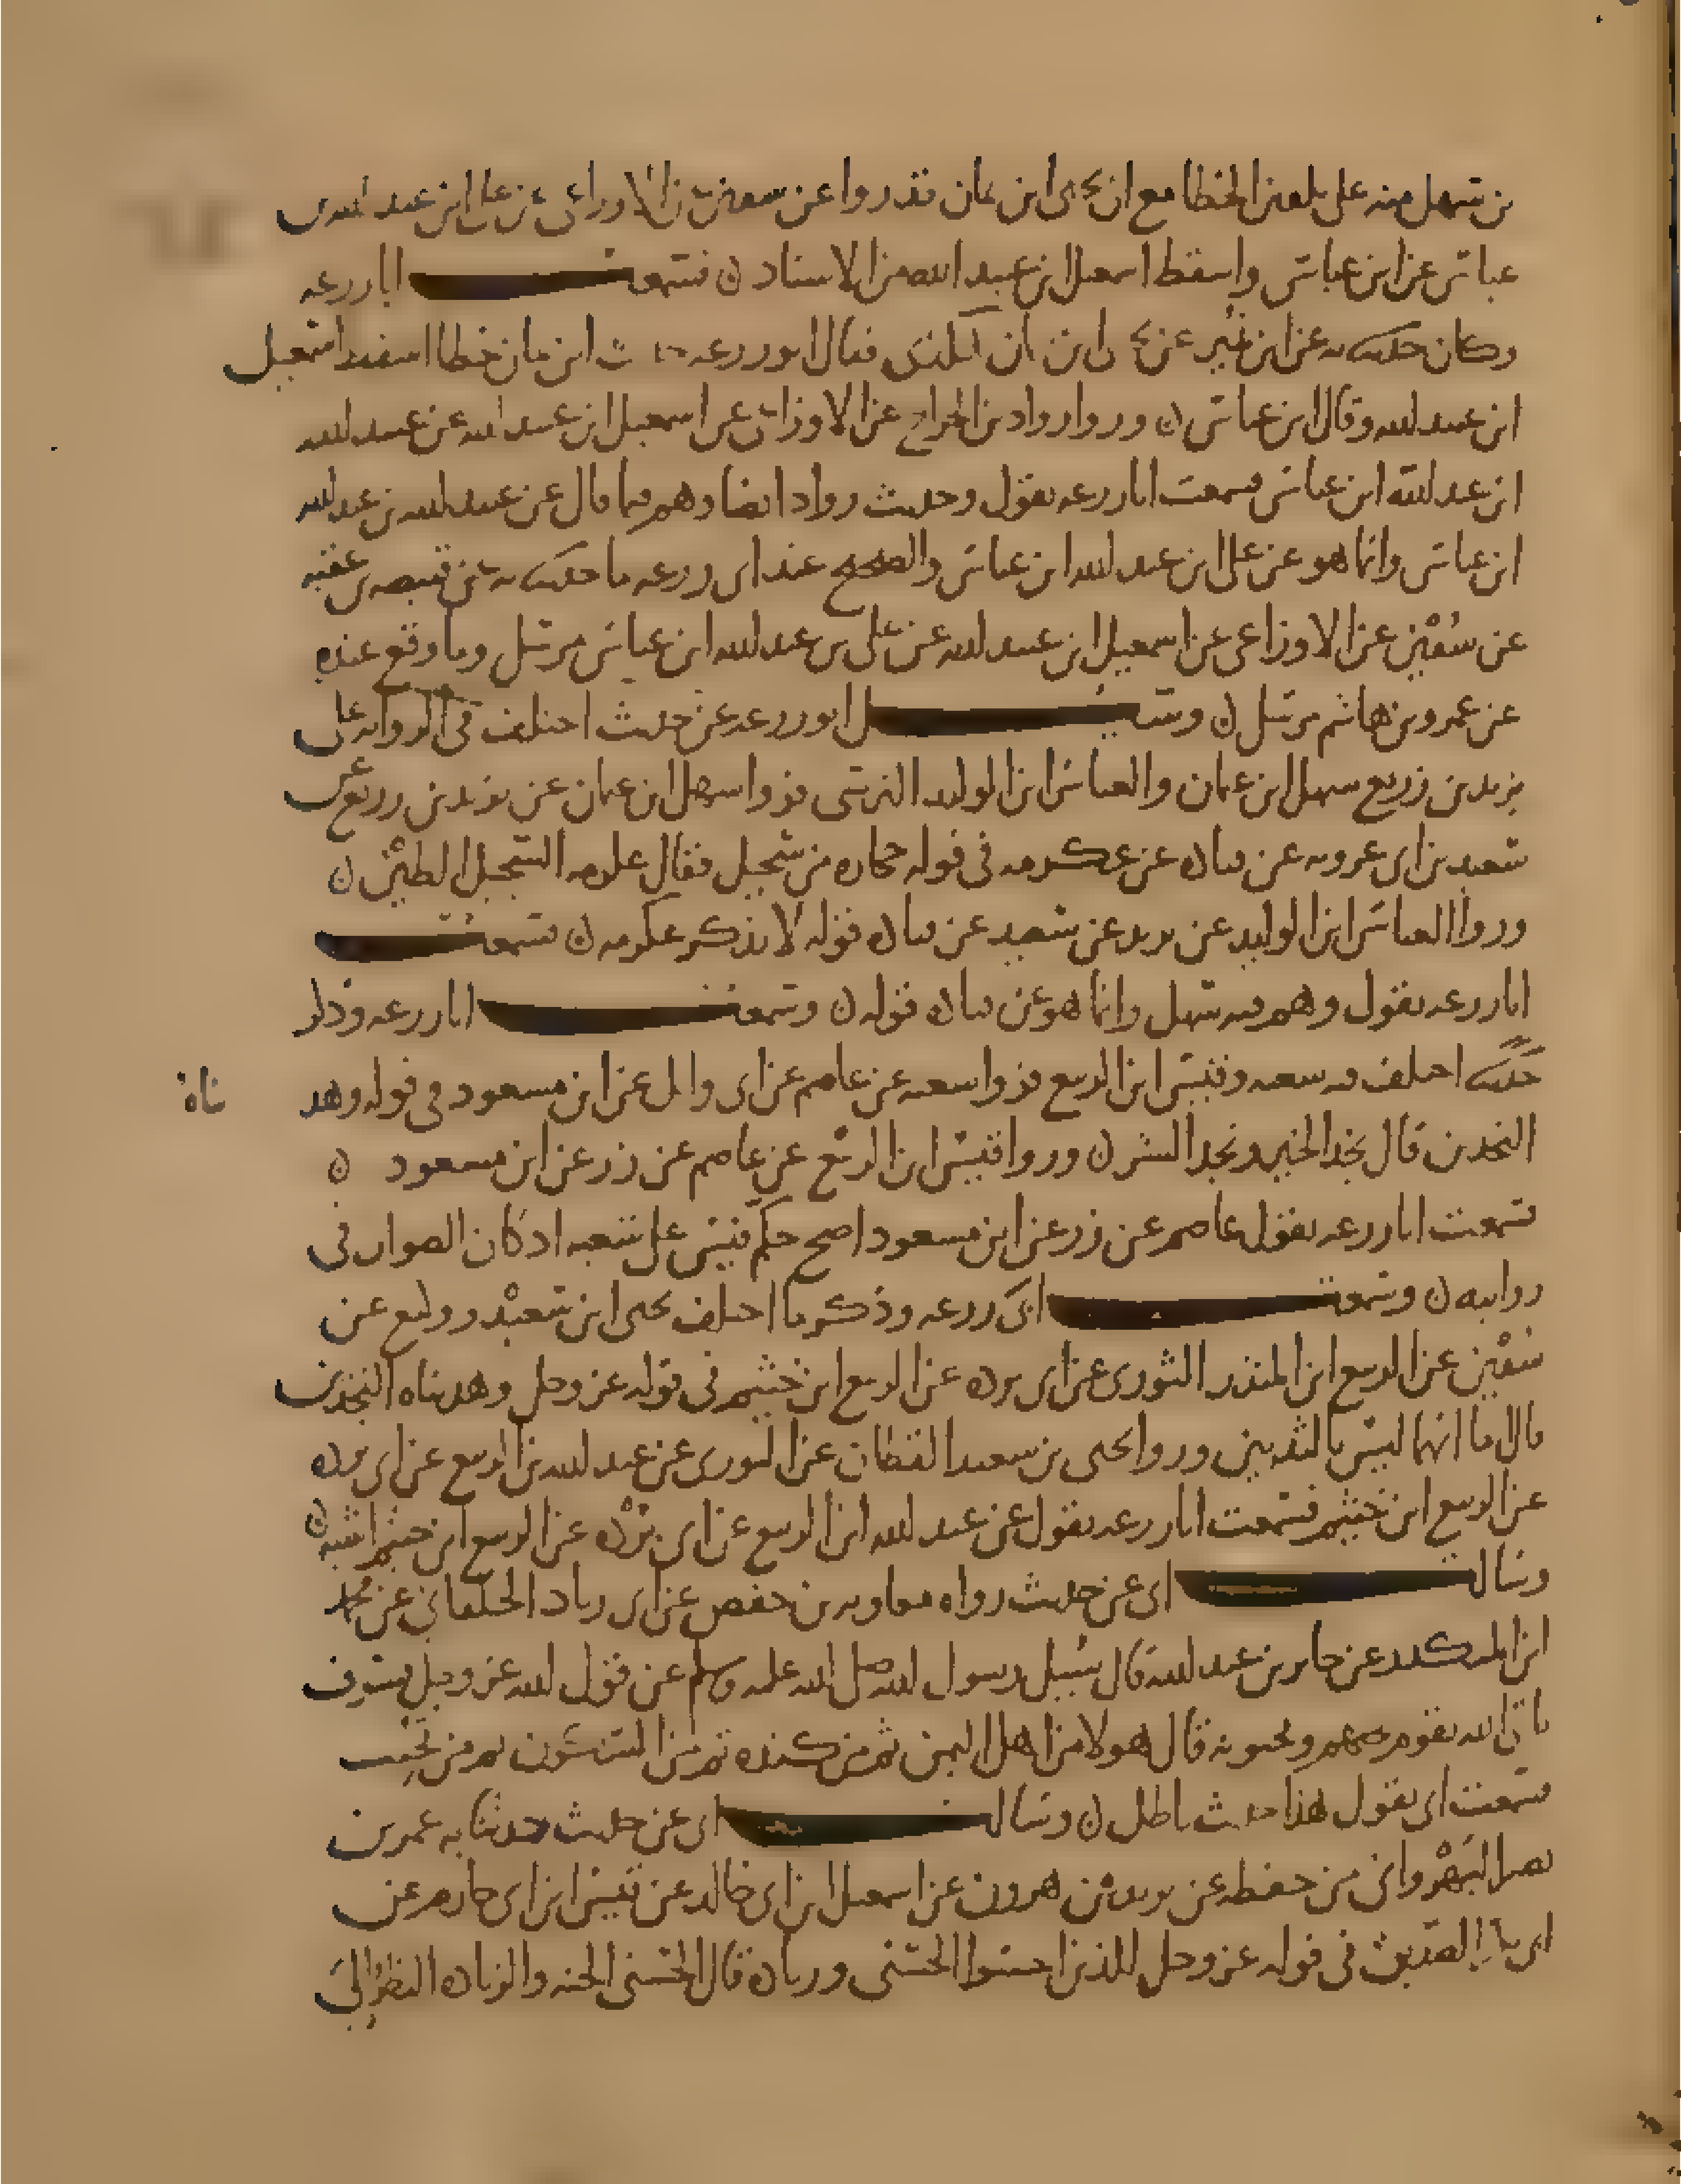 من سهل منه على بلعنن الخطا مع ان يحيى ابن يمان قد روا عن سفين عن الاوزاعى عن على ابن عبد الله بن
عباس عن ابن عباس واسقط اسمعيل ابن عبيد الله من الاسناد ن فسمعت ابا زرعه
وكان حدثنا به عن ابن نمير عن يحيى ابن يمان كذلك فقال ابو زرعه حديث ابن يمان خطا اسقط اسمعيل
ابن عبيد الله وقال ابن عباس ن وروا رواد بن الجراح عن الاوزاعى عن اسمعيل ابن عبيد الله عن عبيد الله
ابن عبد الله ابن عباس فسمعت ابا زرعه يقول وحديث رواد ايضا وهم فيما قال عن عبيد الله بن عبد الله
ابن عباس وانما هو عن على ابن عبد الله ابن عباس والصحيح عند ابى زرعه ما حدثنا به عن قبيصه بن عقبه
عن سفين عن الاوزاعى عن اسمعيل ابن عبيد الله عن على بن عبد الله ابن عباس مرسل وما وقع عنده
عن عمرو بن هاشم مرسل ن وسئل ابو زرعه عن حديث اختلف فى الروايه على
يزيد بن زريع سهل ابن عثمان والعباس ابن الوليد النرسى فروا سهل ابن عثمان عن يزيد بن زريع عن
سعيد بن ابى عروبه عن قتاده عن عكرمه فى قوله حجاره من سجيل فقال عكرمه السجيل الطين ن
وروا العباس ابن الوليد عن يزيد عن سعيد عن قتاده قوله لا يذكر عكرمه ن فسمعت
ابا زرعه يقول وهم فيه سهل وانما هو عن قتاده قوله ن وسمعت ابا زرعه وذكر
حديث اختلف فيه شعبه وقيس ابن الربيع فروا شعبه عن عاصم عن ابى وايل عن ابن مسعود فى قوله وهد يناه
النجدين قال نجد الخير ونجد الشر ن وروا قيس ابن الربيع عن عاصم عن زر عن ابن مسعود ن
فسمعت ابا زرعه يقول عاصم عن زر عن ابن مسعود اصح حكم قيس على شعبه اذ كان الصواب فى
روايته ن وسمعت ابى زرعه وذكر ما اختلف يحيى ابن سعيد ووكيع عن
سفين عن الربيع ابن المنذر الثورى عن ابى برده عن الربيع ابن خثيم فى قوله عز وجل وهديناه النجدين
قال اما انهما ليس بالثديين وروا يحيى بن سعيد القطان عن الثورى عن عبد الله بن الربيع عن ابى برده
عن الربيع ابن خثيم فسمعت ابا زرعه يقول عن عبد الله ابن الربيع عن ابى برده عن الربيع ابن خثيم اشبه ن
وسالت ابى عن حديث رواه معاويه بن حفص عن ابى زياد الخلقانى عن محمد
ابن المنكدر عن جابر بن عبد الله قال سئل رسول الله صلى الله عليه وسلم عن قول الله عز وجل فسوف
ياتى الله بقوم يحبهم ويحبونه قال هولا من اهل اليمن ثم من كنده ثم من السكون ثم من تجيب
فسمعت ابى يقول هذا حديث باطل ن وسالت ابى عن حديث حدثنا به عمر بن
نصر النهروانى من حفظه عن يزيد بن هرون عن اسمعيل ابن ابى خالد عن قيس ابن ابى حازم عن
ابى بكر الصديق فى قوله عز وجل للذين احسنوا الحسنى وزياده قال الحسنى الجنه والزياده النظر الى